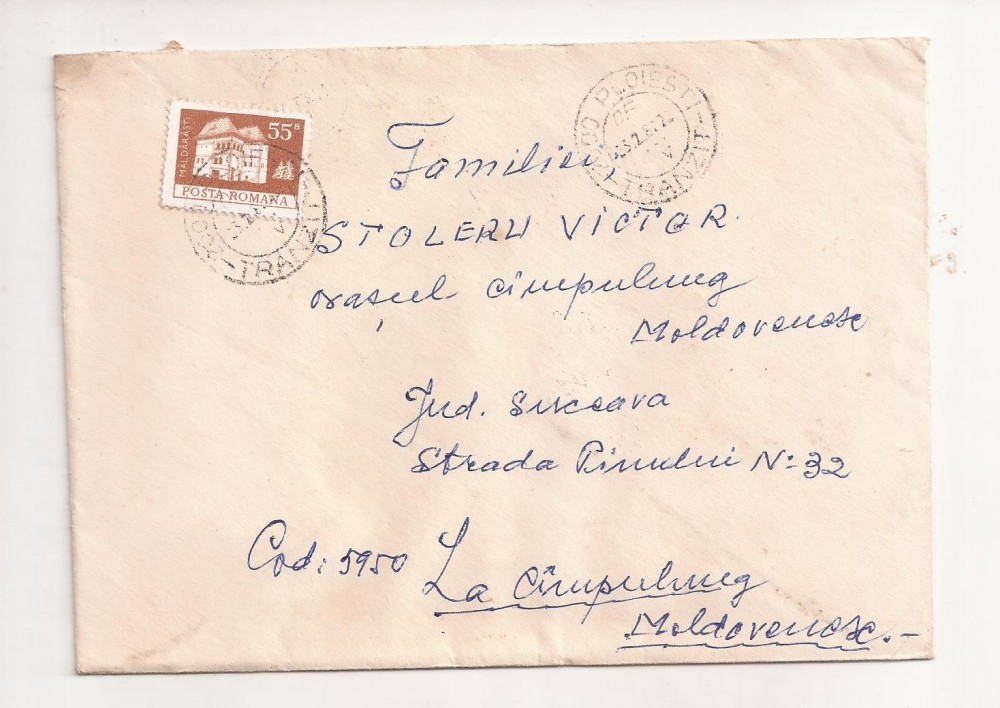 MALDĂRĂȘTI
55 B
POSTA ROMANA
PLOIESTI-TRANZIT
-TRANZIT
Familiei,
STOLERU VICTOR
orașul Cîmpulung
Moldovenesc
Jud. Suceava
Strada Pinului Nº 32
Cod: 5950
La Cîmpulung
Moldovenesc.-